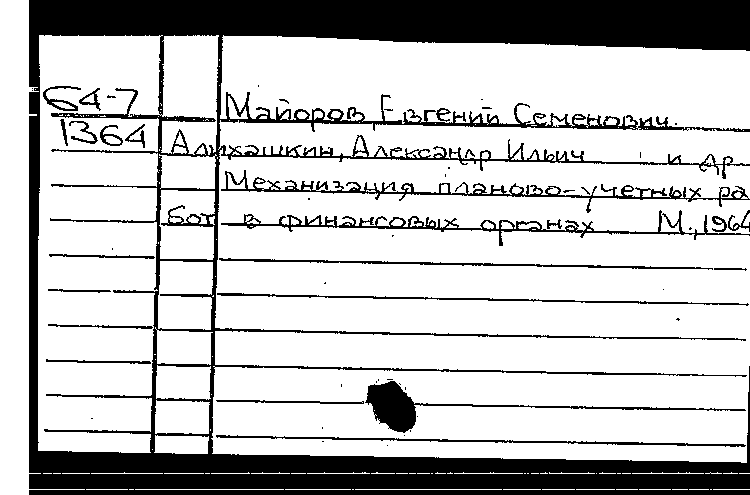 64-7 Майоров, Евгений Семенович.
1364 Алихашкин, Александр Ильич и др
Механизация планово-учетных ра
бот в финансовых органах М., 1964